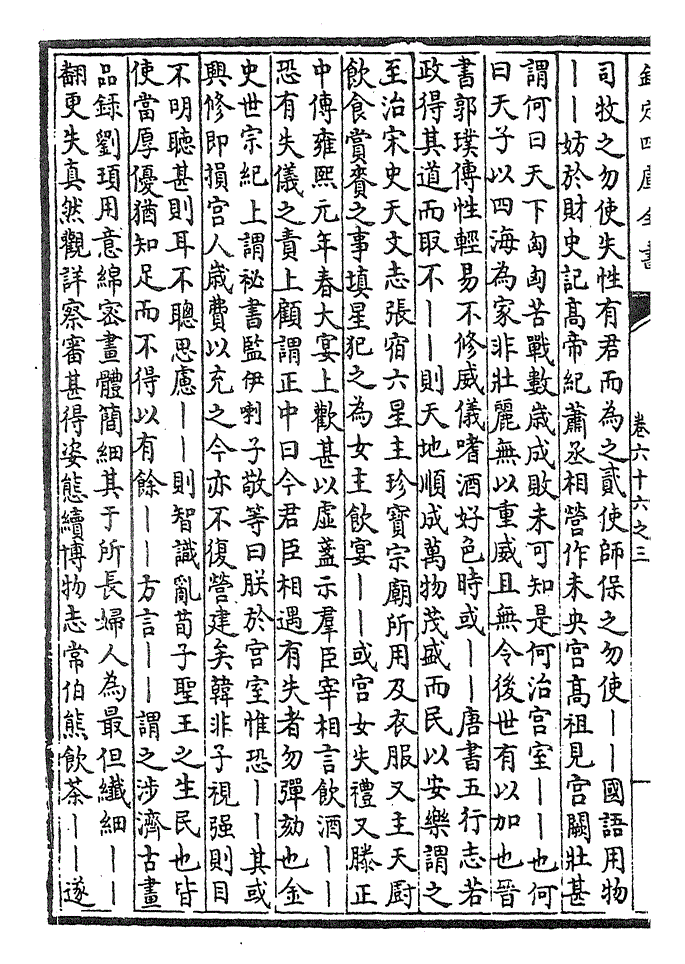 欽定四庫全書
卷六十六之三
司牧之勿使失性有君而為之貳使師保之勿使｜｜國語用物
｜｜妨於財史記高帝紀蕭丞相營作未央宮高祖見宮闕壯甚
謂何曰天下匈匈苦戰數歲成敗未可知是何治宮室｜｜也何
曰天子以四海為家非壯麗無以重威且無令後世有以加也晉
書郭璞傳性輕易不修威儀嗜酒好色時或｜｜唐書五行志若
政得其道而取不｜｜則天地順成萬物茂盛而民以安樂謂之
至治宋史天文志張宿六星主珍寶宗廟所用及衣服又主天厨
飲食賞賚之事填星犯之為女主飲宴｜｜或宮女失禮又滕正
中傳雍熙元年春大宴上歡甚以虛盞示羣臣宰相言飲酒｜｜
恐有失儀之責上顧謂正中曰今君臣相遇有失者勿彈劾也金
史世宗紀上謂祕書監伊喇子敬等曰朕於宮室惟恐｜｜其或
興修即損宮人歲費以充之今亦不復營建矣韓非子視强則目
不明聽甚則耳不聰思慮｜｜則智識亂荀子聖王之生民也皆
使當厚優猶知足而不得以有餘｜｜方言｜｜謂之涉濟古畫
品錄劉瑱用意綿密畫體簡細其于所長婦人為最但纖細｜｜
翻更失真然觀詳察審甚得姿態續博物志常伯熊飲茶｜｜遂